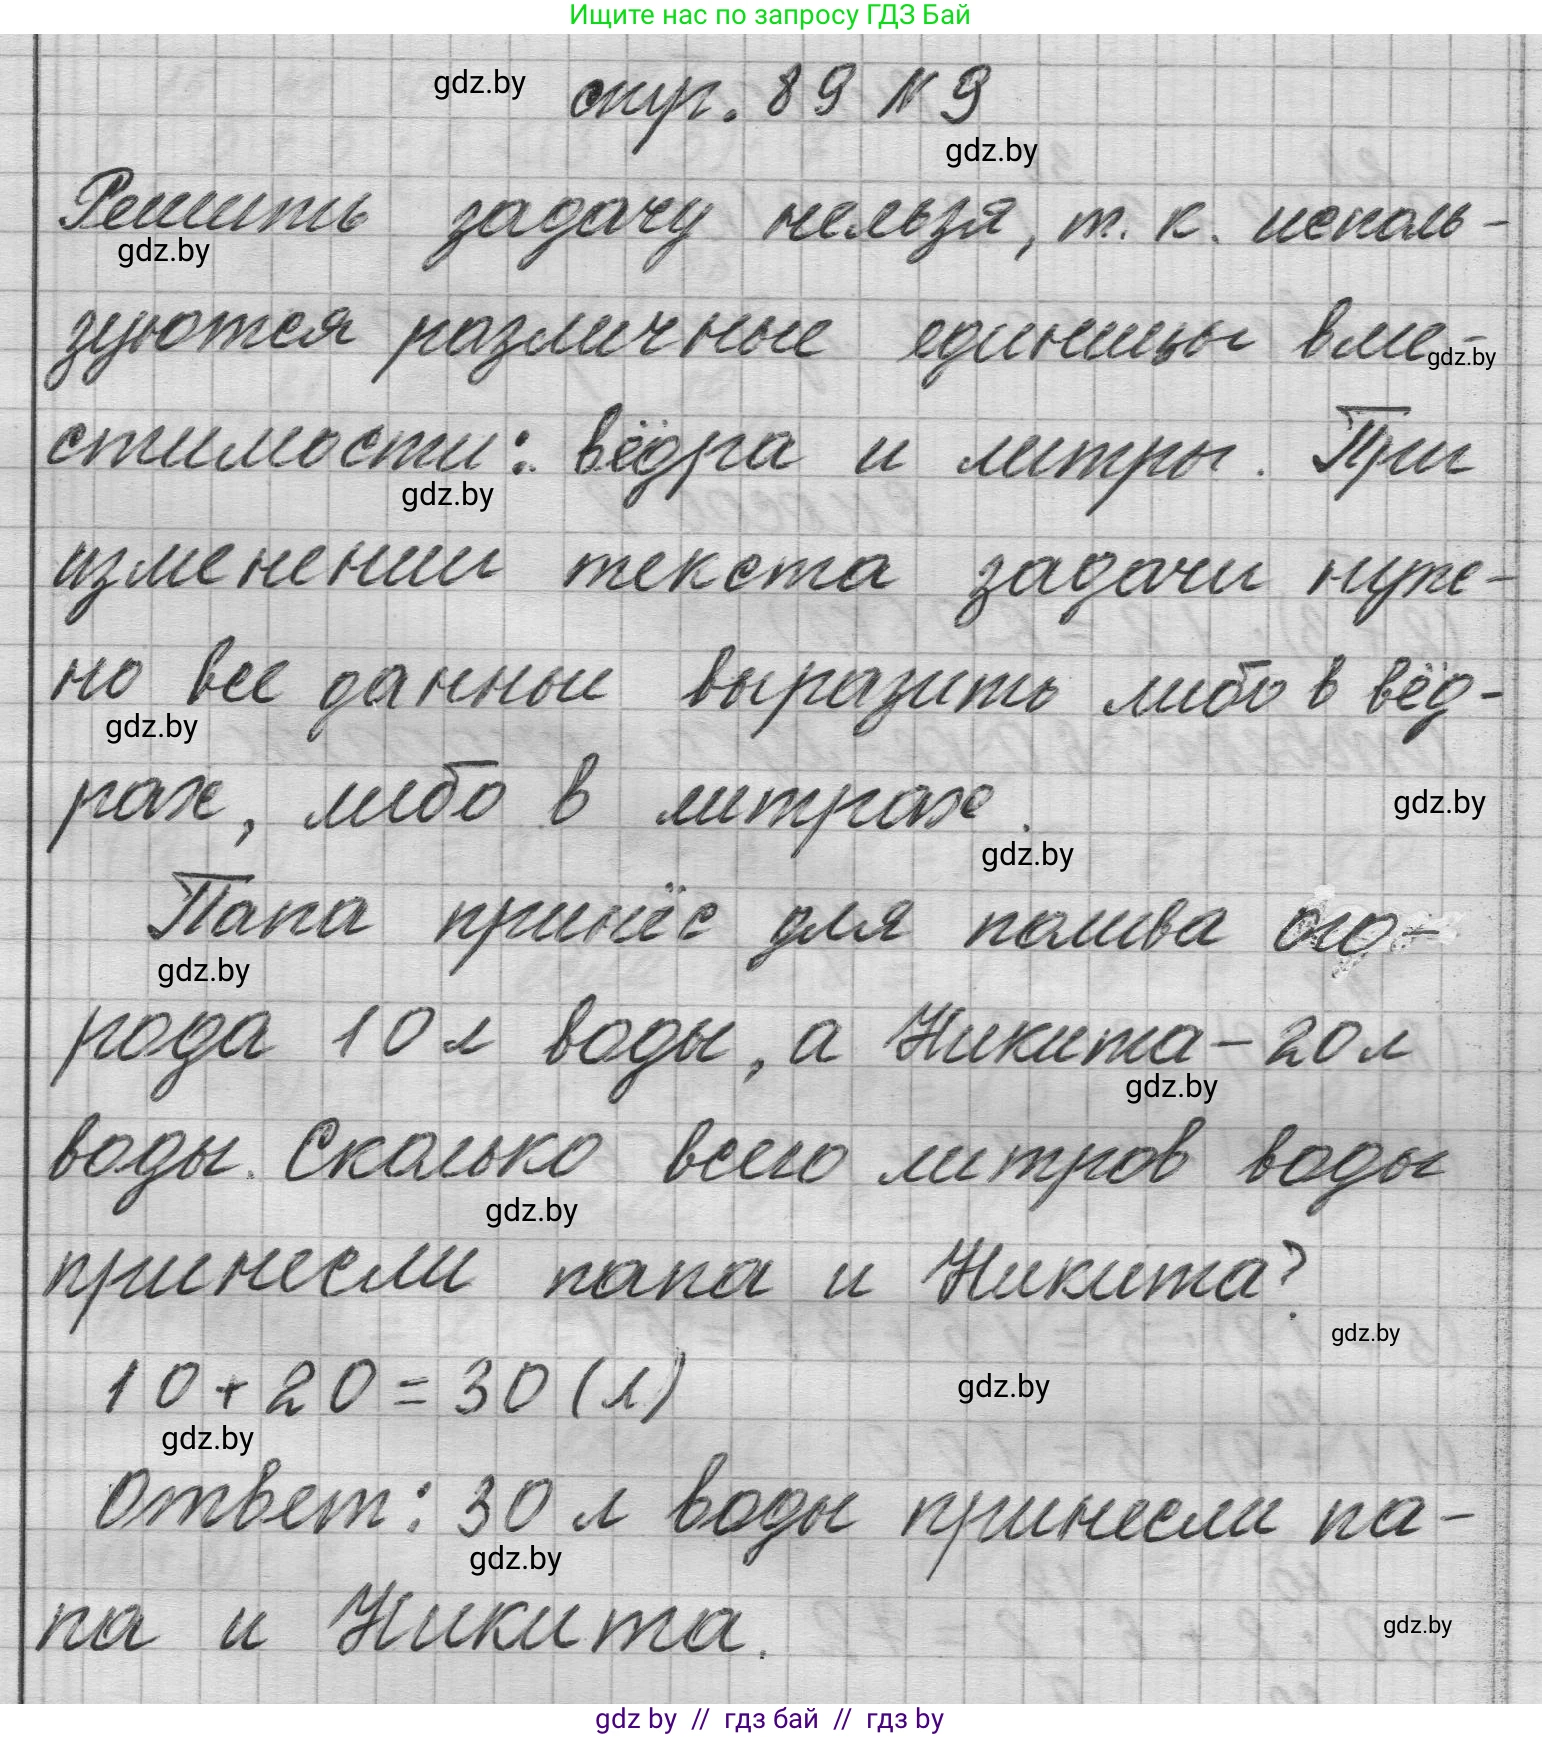 Ищите нас по запросу ГДЗ Бай
gdz.by стр. 89 №9
gdz.by
Решить задачу нельзя, т. к. исполь-
gdz.by
зуются различные единицы вме-
gdz.by
стимости: вёдра и литры. При
gdz.by
изменении текста задачи нуж-
но все данные выразить либо в вёд-
gdz.by
рах, либо в литрах.
gdz.by
gdz.by
Папа принёс для полива ого-
gdz.by
рода 10 л воды, а Никита - 20 л
gdz.by
воды. Сколько всего литров воды
gdz.by
принесли папа и Никита?
gdz.by
10 + 20 = 30 (л)
gdz.by
gdz.by
Ответ: 30 л воды принесли па-
gdz.by
па и Никита.
gdz.by
gdz by // гдз бай // гдз by